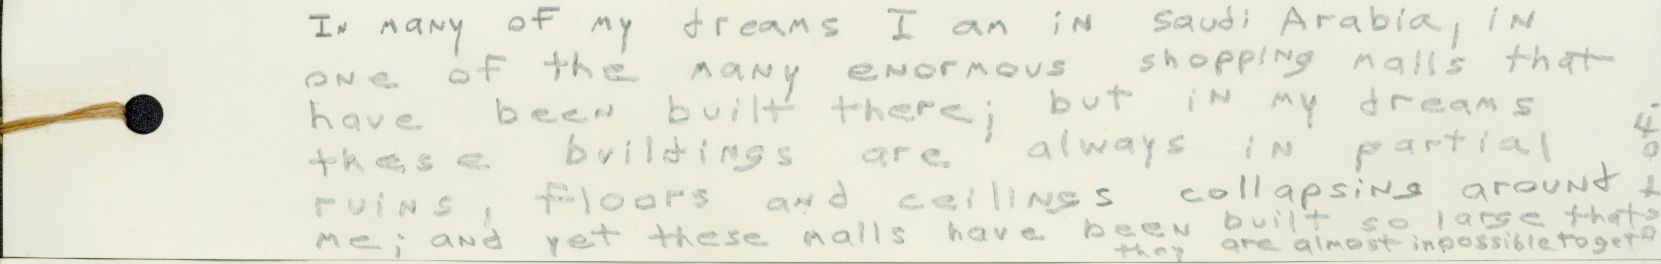 In many of my dreams I am in Saudi Arabia, in
one of the many enormous shopping malls that
have been built there; but in my dreams
these buildings are always in partial
ruins, floors and ceilings collapsing around
me; and yet these malls have been built so large that
they are almost impossible to get